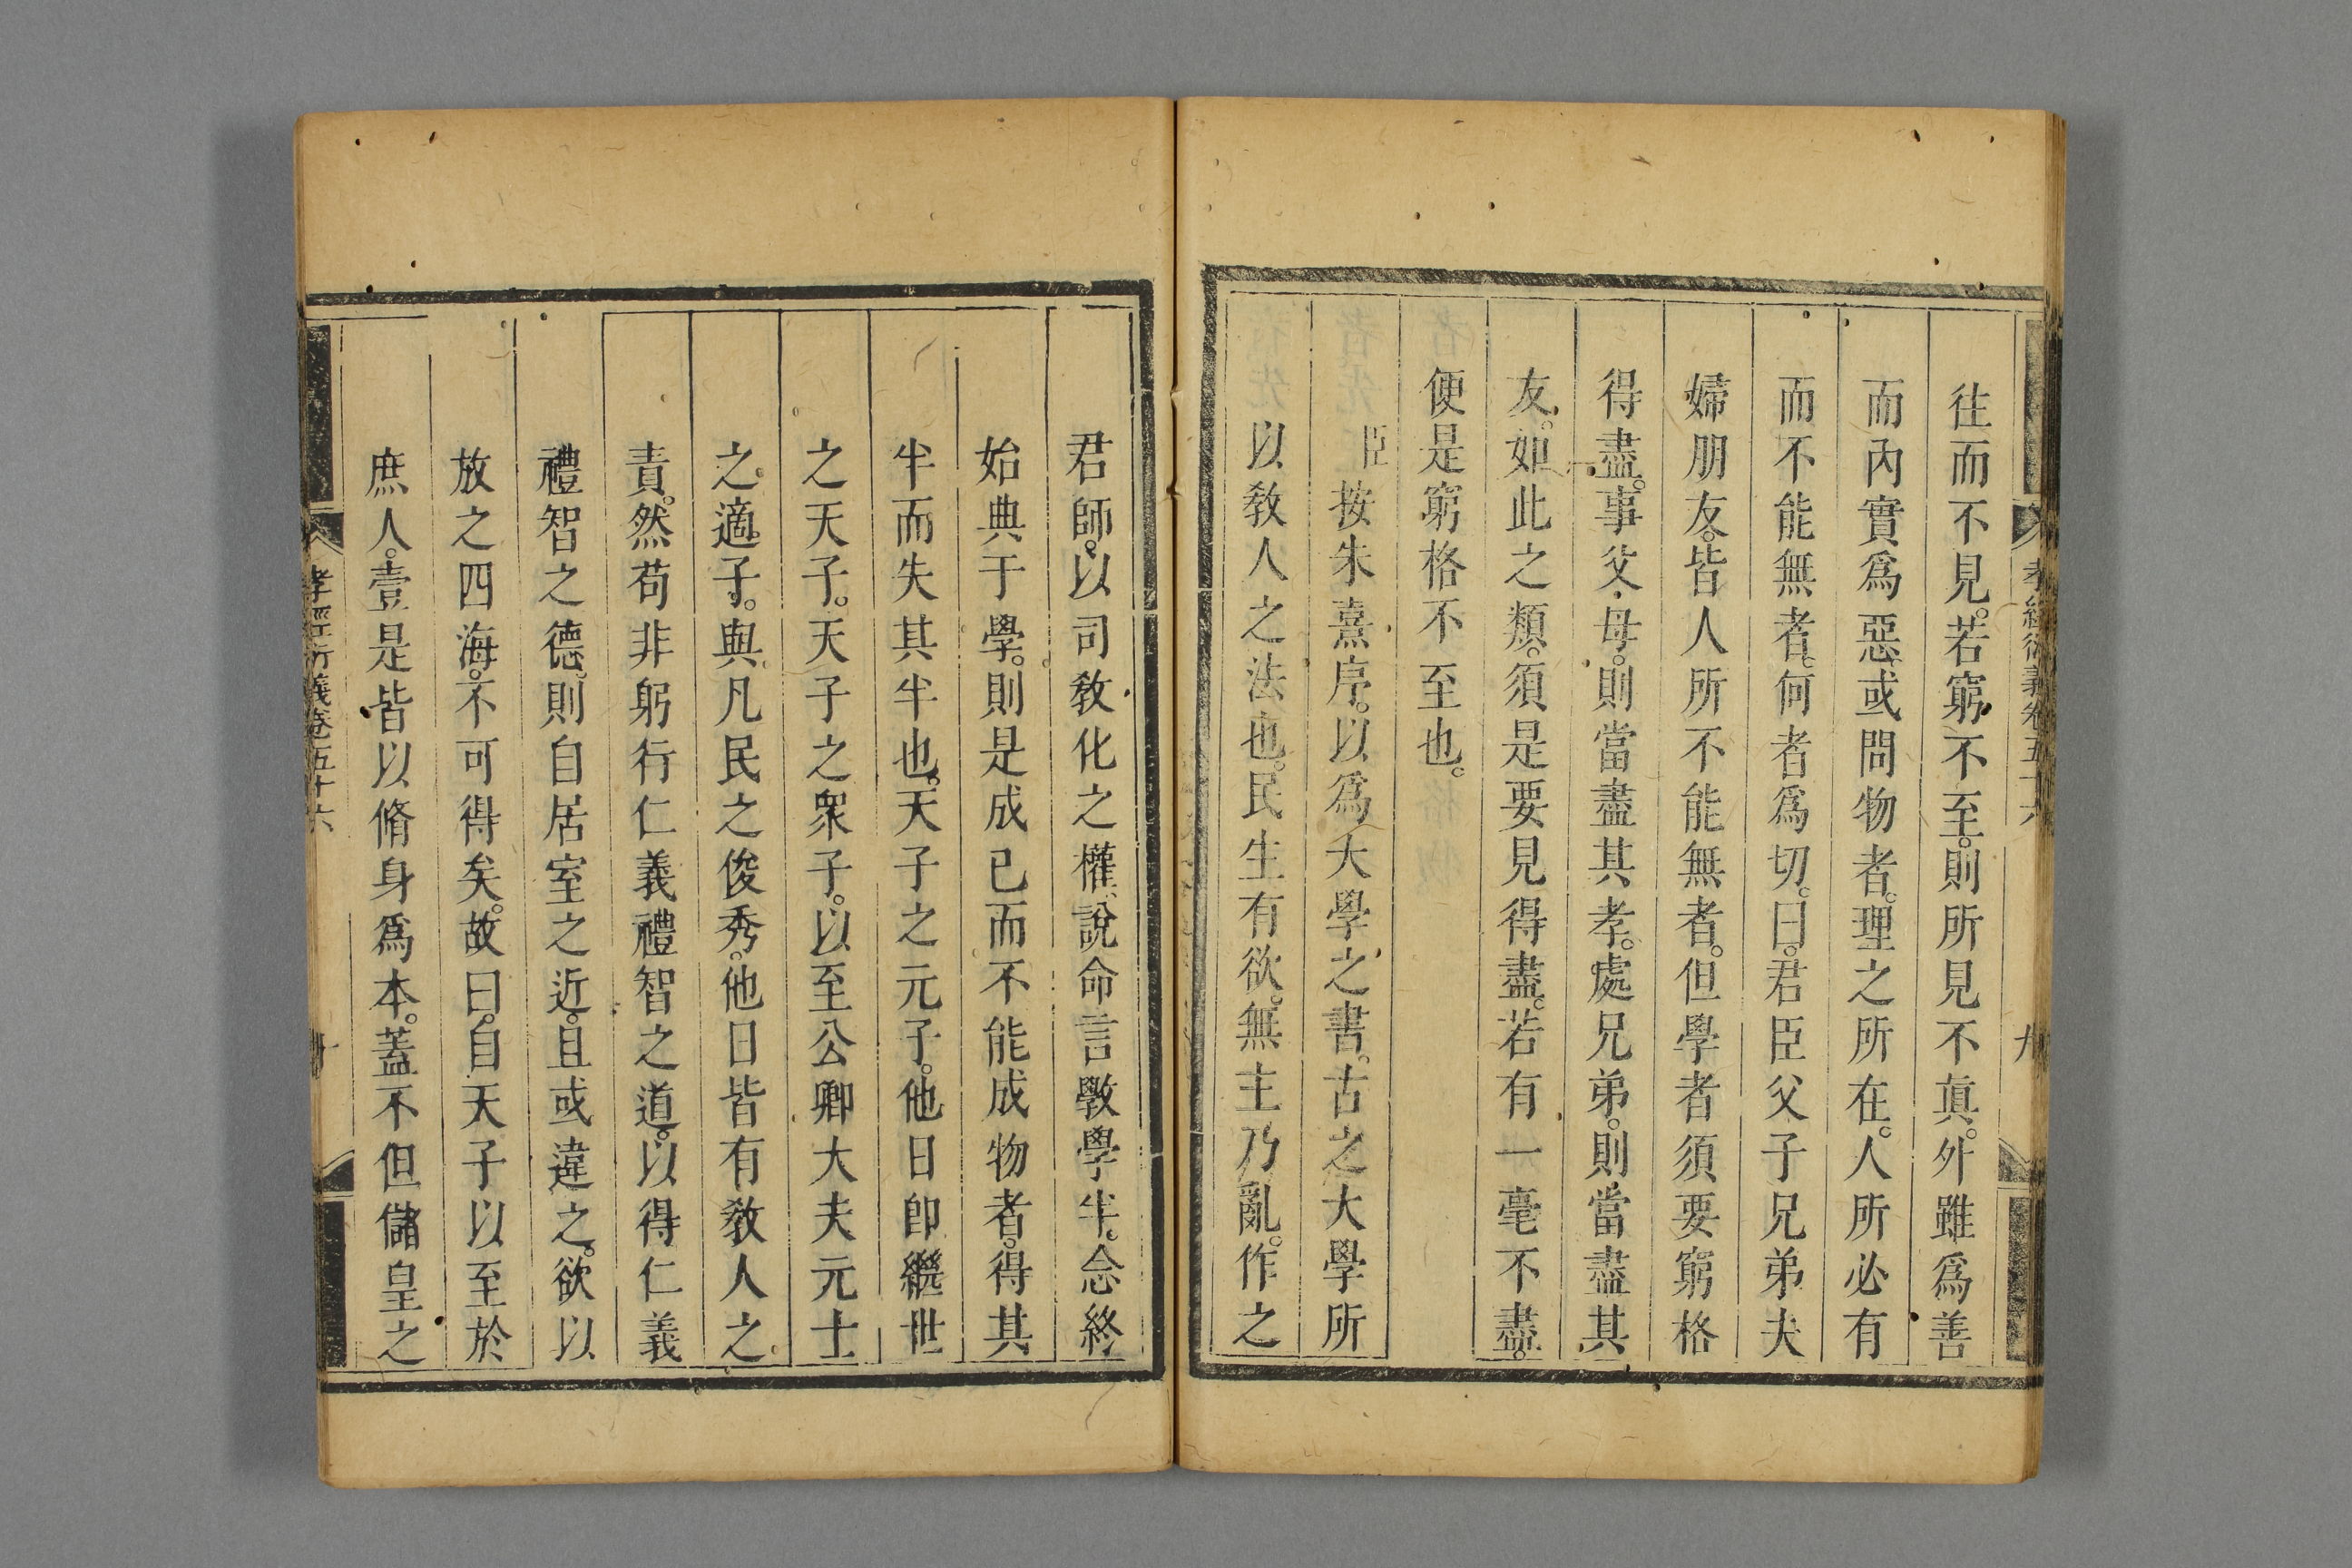 孝經衍義卷五十六
九
往而不見。若窮不至。則所見不眞。外雖爲善
而內實爲惡。或問物者。理之所在。人所必有
而不能無者。何者爲切。曰。君臣父子兄弟夫
婦朋友。皆人所不能無者。但學者須要窮格
得盡。事父母。則當盡其孝。處兄弟。則當盡其
友。如此之類。須是要見得盡。若有一毫不盡。
便是窮格不至也。
臣按朱熹序。以爲大學之書。古之大學所
以敎人之法也。民生有欲。無主乃亂。作之
君師。以司敎化之權、說命言斅學半。念終
始典于學。則是成已而不能成物者。得其
半而失其半也。天子之元子。他日卽繼世
之天子。天子之衆子。以至公卿大夫元士
之適子。與凡民之俊秀。他日皆有敎人之
責。然苟非躬行仁義禮智之道。以得仁義
禮智之德。則自居室之近。且或違之。欲以
放之四海。不可得矣。故曰。自天子以至於
庶人。壹是皆以脩身爲本。蓋不但儲皇之
孝經衍義卷五十六
十